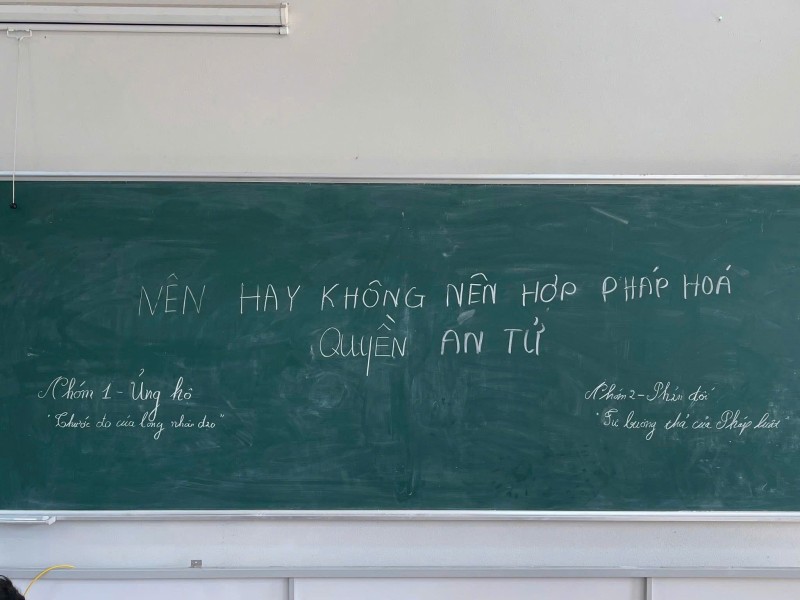 NÊN HAY KHÔNG NÊN HỢP PHÁP HOÁ
QUYỀN AN TỬ
Nhóm 1 - Ủng hộ
"Thước đo của lòng nhân đạo"
Nhóm 2 - Phản đối
"Sự buông thả của Pháp luật"